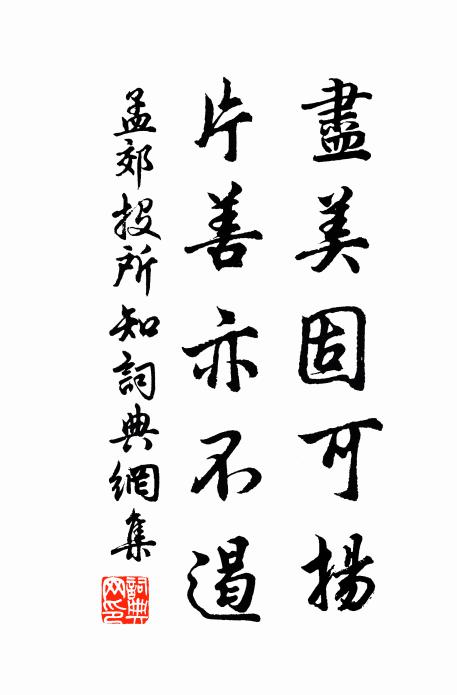 盡美固可揚
片善亦不遏
孟郊投所知詞典網集
詞典網印